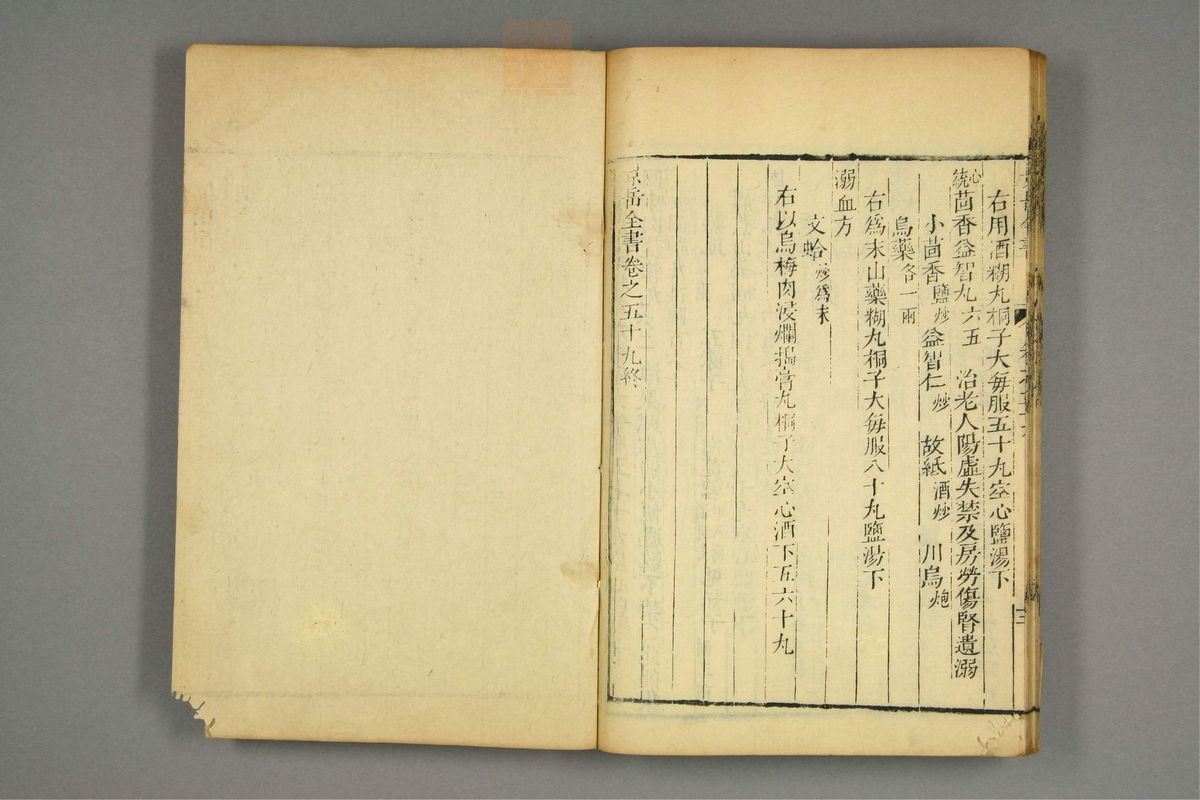 右用酒糊丸桐子大每服五十丸空心鹽湯下
心統茴香益智丸 六五 治老人陽虛失禁及房勞傷腎遺溺
小茴香鹽炒 益智仁炒 故紙酒炒 川烏炮
烏藥各一兩
右為末山藥糊丸桐子大每服八十丸鹽湯下
溺血方
文蛤炒為末
右以烏梅肉浸爛搗膏丸桐子大空心酒下五六十丸
景岳全書卷之五十九終